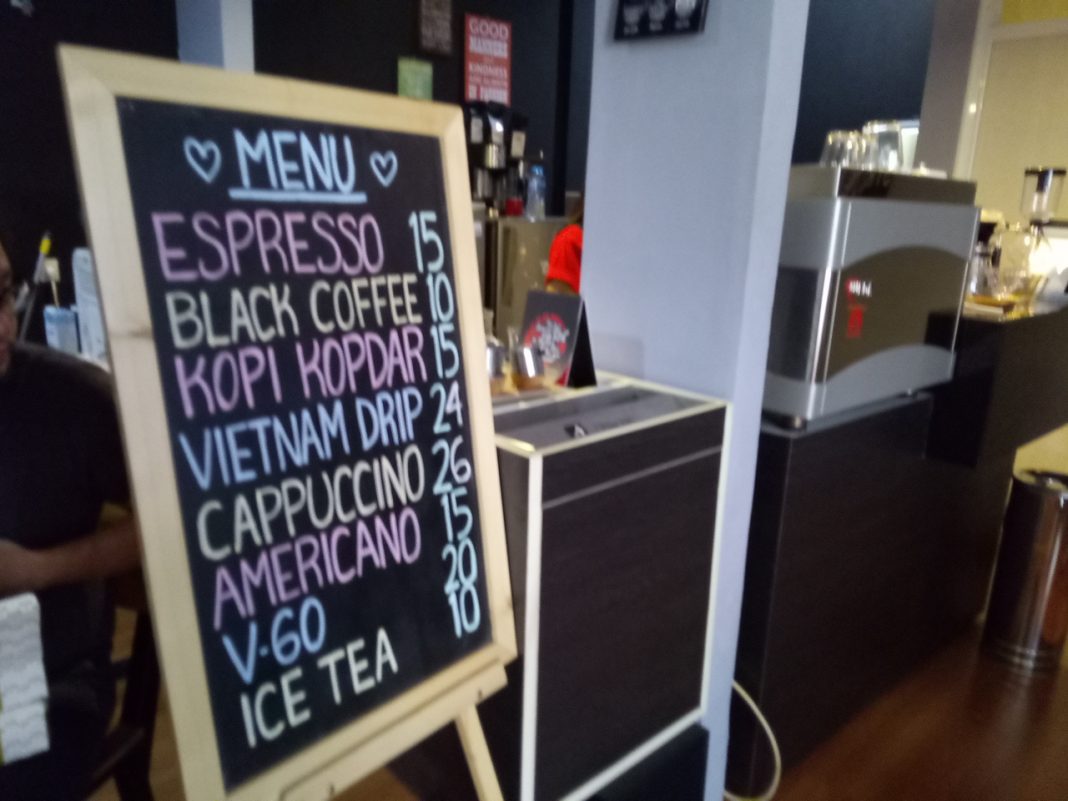 MENU
ESPRESSO 15
BLACK COFFEE 10
KOPI KOPDAR 15
VIETNAM DRIP 24
CAPPUCCINO 26
AMERICANO 15
V-60 20
ICE TEA 10
GOOD
MANNERS
KINDNESS